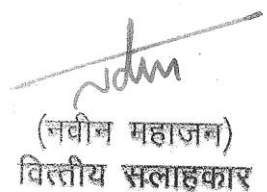 (नवीन महाजन)
वित्तीय सलाहकार